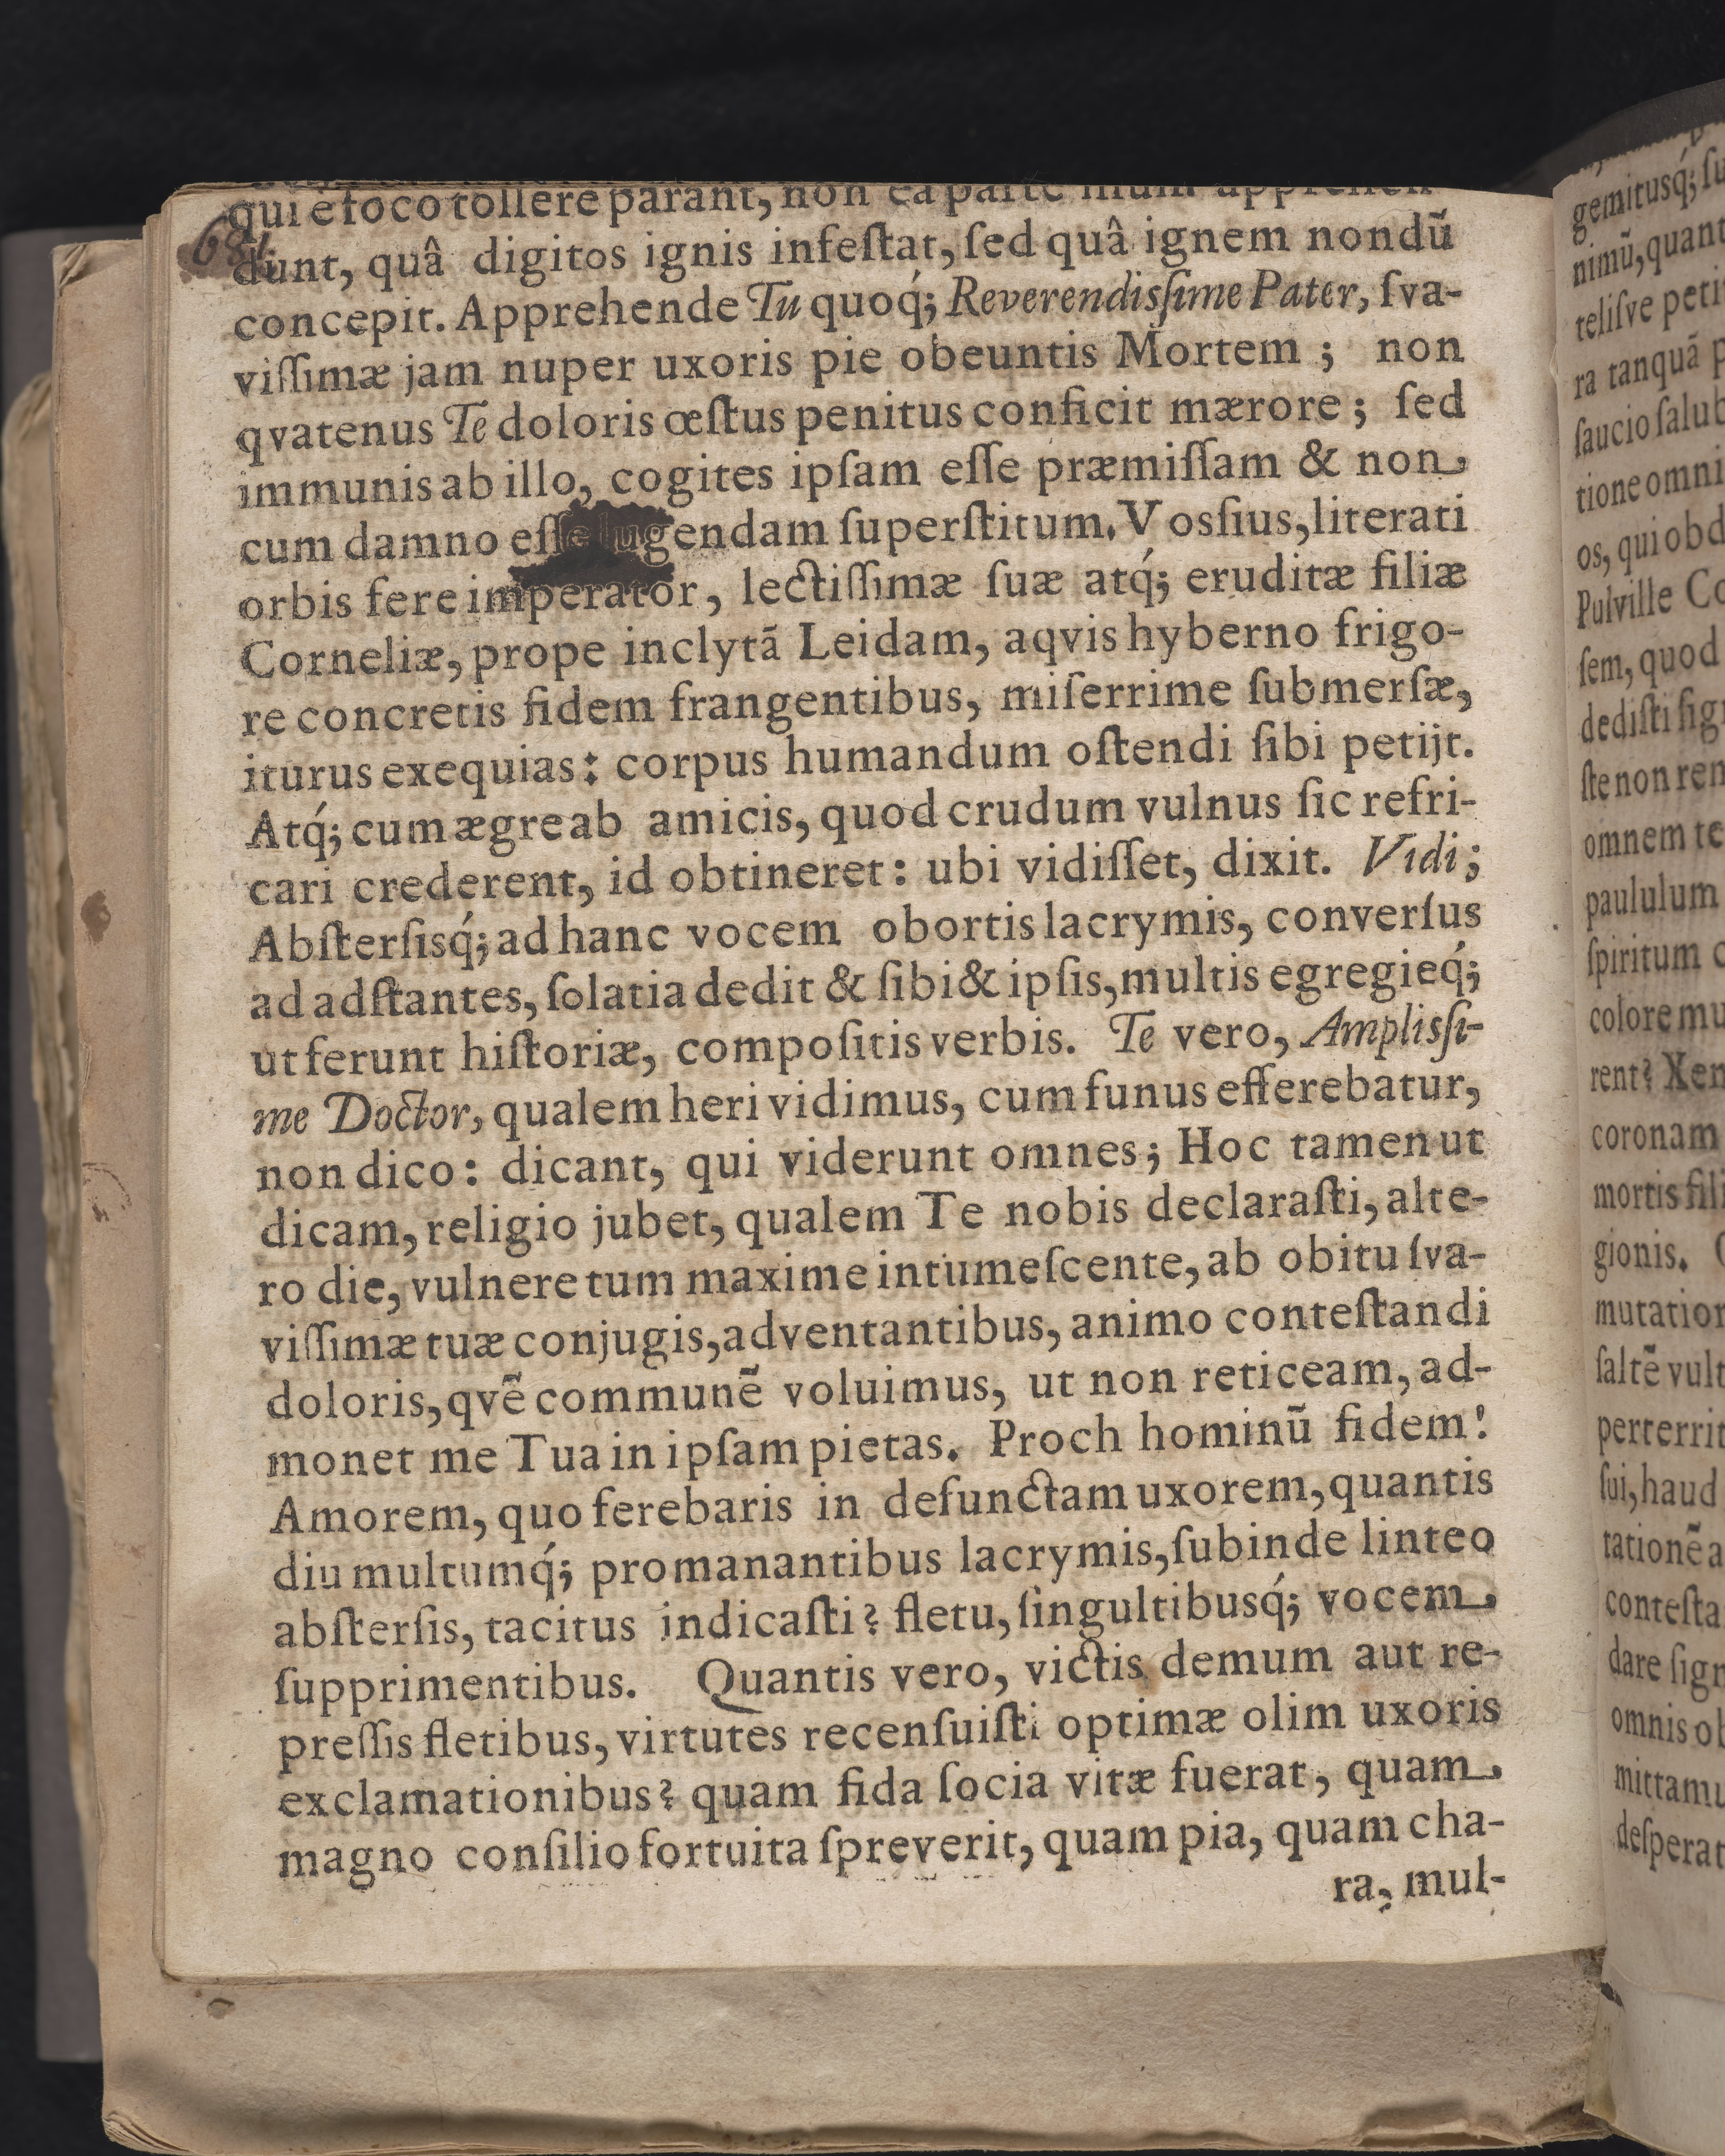 qui e foco tollere parant, non ea parte illum apprehen-
dunt, quâ digitos ignis infeſtat, ſed quâ ignem nondũ
concepit. Apprehende Tu quoq́; Reverendisſime Pater, ſva-
viſſimæ jam nuper uxoris pie obeuntis Mortem ; non
qvatenus Te doloris œſtus penitus conficit mærore ; ſed
immunis ab illo, cogites ipſam eſſe præmiſſam & non
cum damno eſſe lugendam ſuperſtitum. Vosſius, literati
orbis fere imperator, lectiſſimæ ſuæ atq́; eruditæ filiæ
Corneliæ, prope inclytã Leidam, aqvis hyberno frigo-
re concretis fidem frangentibus, miſerrime ſubmerſæ,
iturus exequias: corpus humandum oſtendi ſibi petijt.
Atq́; cum ægre ab amicis, quod crudum vulnus ſic refri-
cari crederent, id obtineret: ubi vidiſſet, dixit. Vidi;
Abſterſisq́; ad hanc vocem obortis lacrymis, converſus
ad adſtantes, ſolatia dedit & ſibi & ipſis, multis egregieq́;
ut ferunt hiſtoriæ, compoſitis verbis. Te vero, Amplisſi-
me Doctor, qualem heri vidimus, cum funus efferebatur,
non dico: dicant, qui viderunt omnes; Hoc tamen ut
dicam, religio jubet, qualem Te nobis declaraſti, alte-
ro die, vulnere tum maxime intumeſcente, ab obitu ſva-
viſſimæ tuæ conjugis, adventantibus, animo conteſtandi
doloris, qvẽ communẽ voluimus, ut non reticeam, ad-
monet me Tua in ipſam pietas. Proch hominũ fidem!
Amorem, quo ferebaris in defunctam uxorem, quantis
diu multumq́; promanantibus lacrymis, ſubinde linteo
abſterſis, tacitus indicaſti? fletu, ſingultibusq́; vocem
ſupprimentibus. Quantis vero, victis demum aut re-
preſſis fletibus, virtutes recenſuiſti optimæ olim uxoris
exclamationibus? quam fida ſocia vitæ fuerat, quam
magno conſilio fortuita ſpreverit, quam pia, quam cha-
ra, mul-
gemitusq́; ſu
nimũ, quant
teliſve peti
ra tanquã p
ſaucio ſalub
tione omni
os, qui ob d
Pulville Co
ſem, quod
dediſti ſig
ſte non ren
omnem te
paululum
ſpiritum c
colore mu
rent? Xen
coronam
mortis fili
gionis.
mutation
ſaltẽ vult
perterrit
ſui, haud
tationẽ a
conteſta
dare ſign
omnis ob
mittamu
deſperat